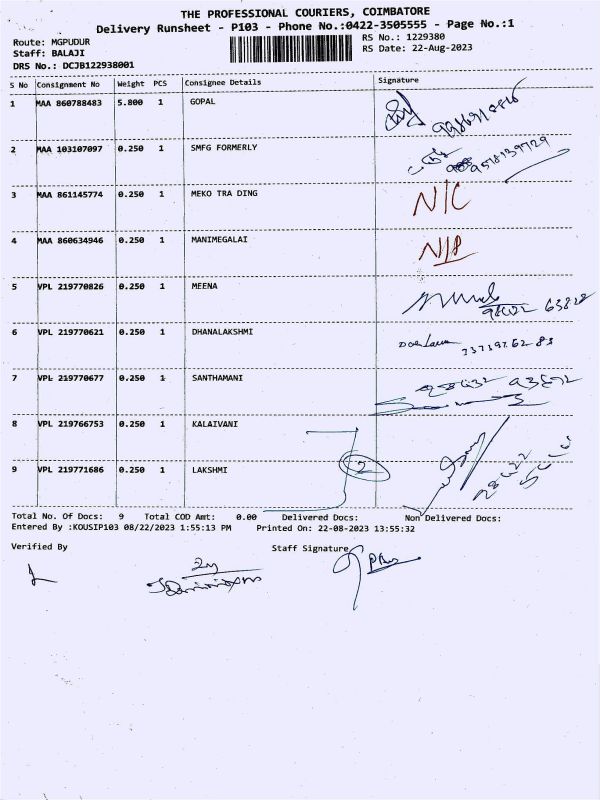 THE PROFESSIONAL COURIERS, COIMBATORE
Delivery Runsheet - P103 - Phone No.:0422-3505555 - Page No.:1
Route: MGPUDUR RS No.: 1229380
Staff: BALAJI RS Date: 22-Aug-2023
DRS No.: DCJB122938001
S No Consignment No Weight PCS Consignee Details Signature
1 MAA 860788483 5.800 1 GOPAL
2 MAA 103107097 0.250 1 SMFG FORMERLY
3 MAA 861145774 0.250 1 MEKO TRA DING N/C
4 MAA 860634946 0.250 1 MANIMEGALAI
5 VPL 219770826 0.250 1 MEENA
6 VPL 219770621 0.250 1 DHANALAKSHMI
7 VPL 219770677 0.250 1 SANTHAMANI
8 VPL 219766753 0.250 1 KALAIVANI
9 VPL 219771686 0.250 1 LAKSHMI 2
Total No. Of Docs: 9 Total COD Amt: 0.00 Delivered Docs: Non Delivered Docs:
Entered By :KOUSIP103 08/22/2023 1:55:13 PM Printed On: 22-08-2023 13:55:32
Verified By Staff Signature